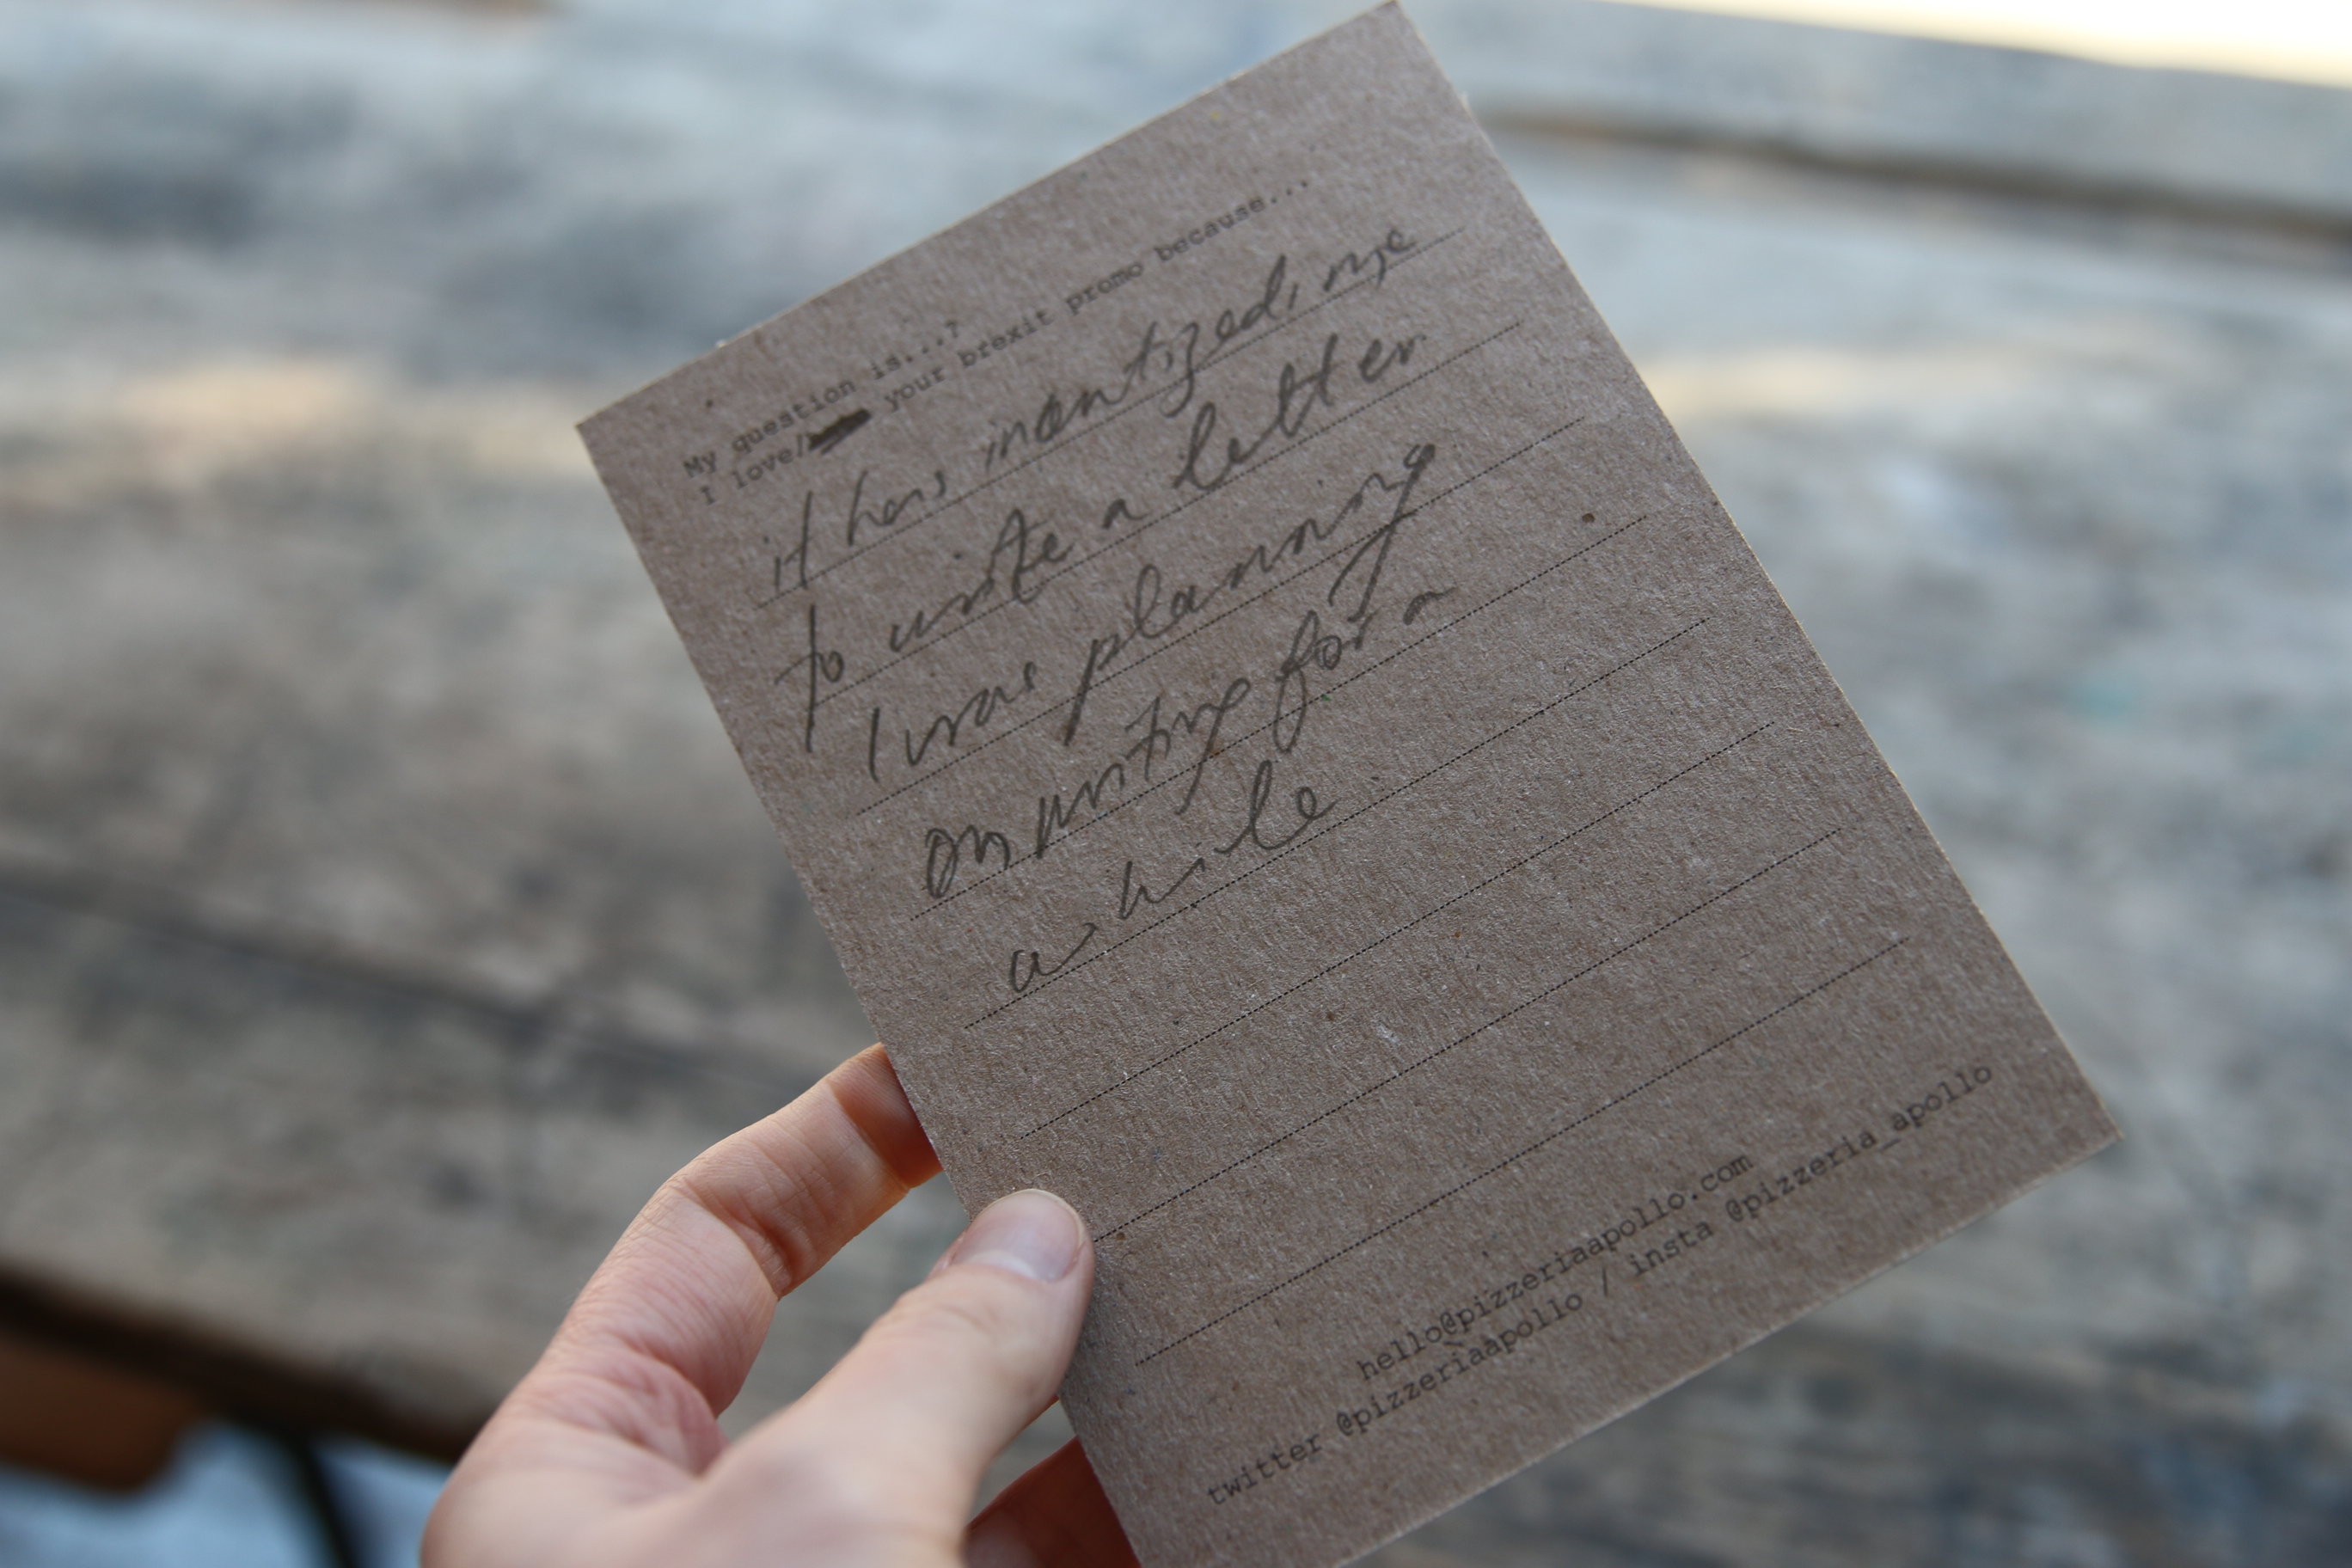 My question is...?
I love/ your brexit promo because...
it has me
to write a letter
I was planning
on writing for a
a while
hello@pizzeriaapollo.com
twitter @pizzeriaapollo / insta @pizzeria_apollo